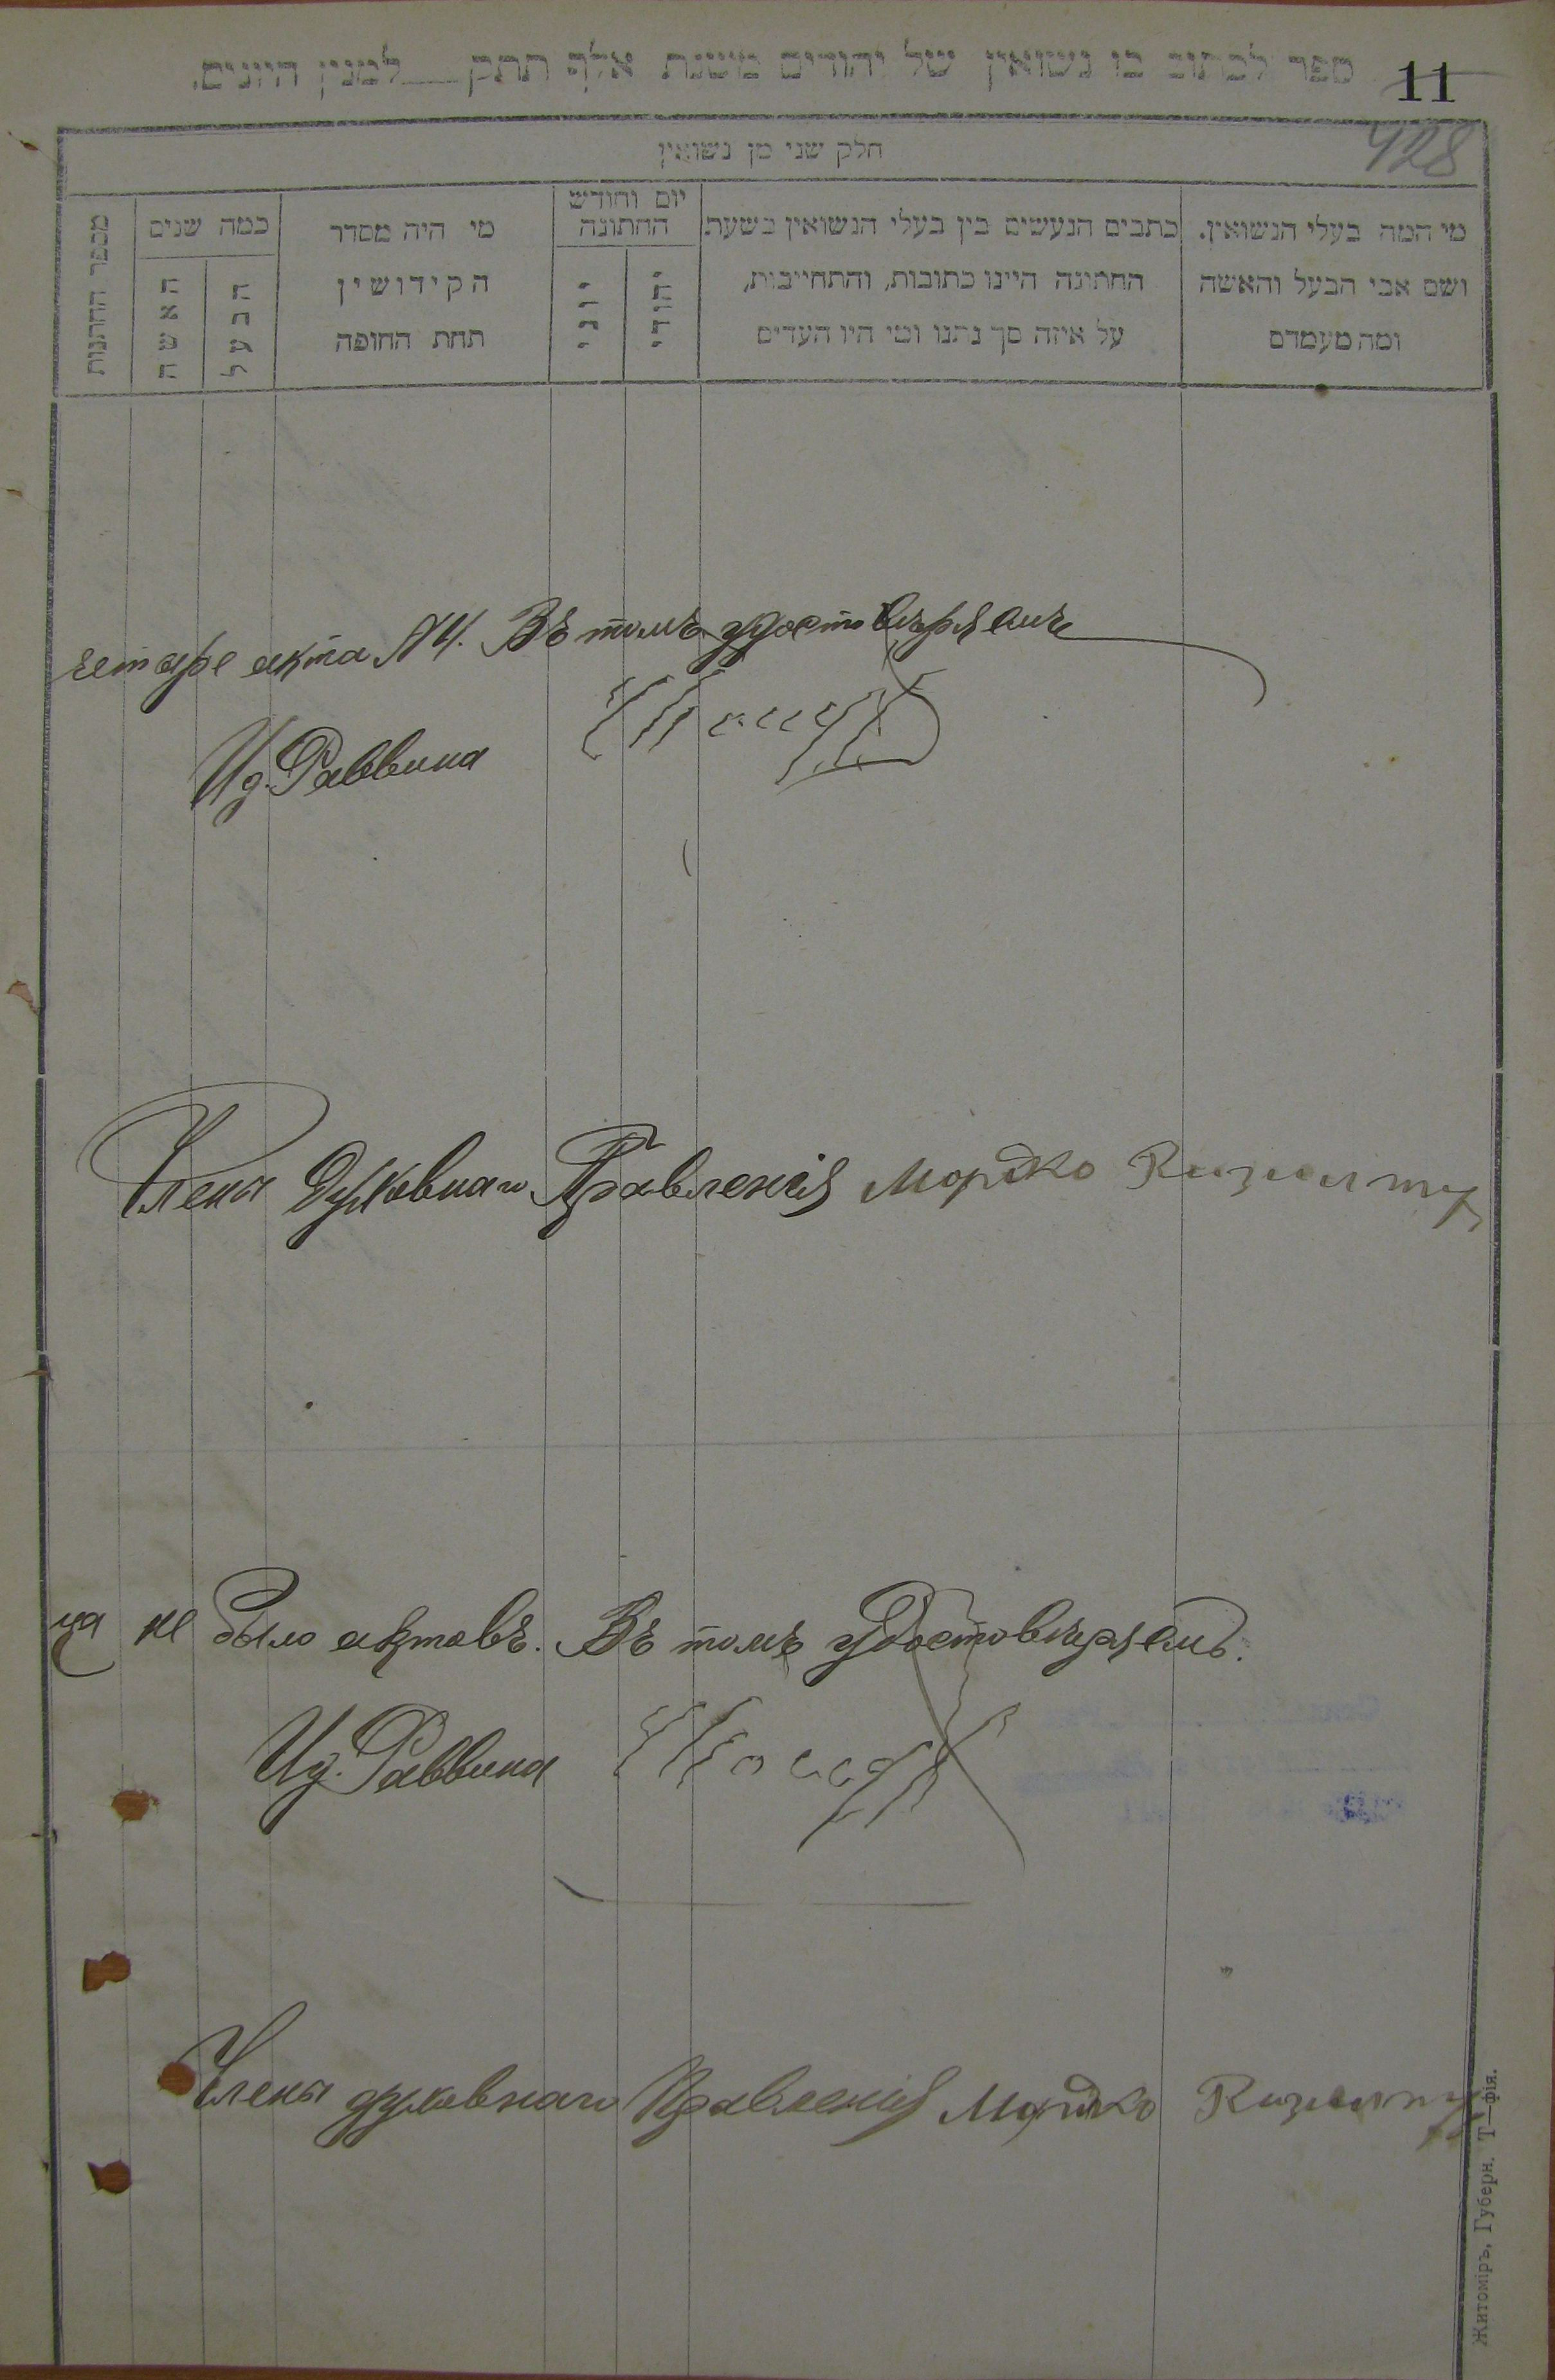 ספר לכתוב בו נשואין של יהודים משנת אלף תתק___למנין היונים.
11
428
חלק שני מן נשואין
מי המה בעלי הנשואין.
ושם אבי הבעל והאשה
ומה מעמדם
כתבים הנעשים בין בעלי הנשואין בשעת
החתונה היינו כתובות, והתחייבות,
על איזה סך נתנו ומי היו העדים
יום וחודש
החתונה
יהודי
יוני
מי היה מסדר
הקידושין
תחת החופה
כמה שנים
הבעל
האשה
מספר החתונות
четыре акта №4. Въ томъ удостовѣряемъ
Ид. Раввина
Члены Духовнаго Правленія Мордко
ца не было актовъ. Въ томъ удостовѣряемъ.
Ид. Раввина
Члены духовнаго Правленія Мордко
Житоміръ, Губерн. Т—фія.